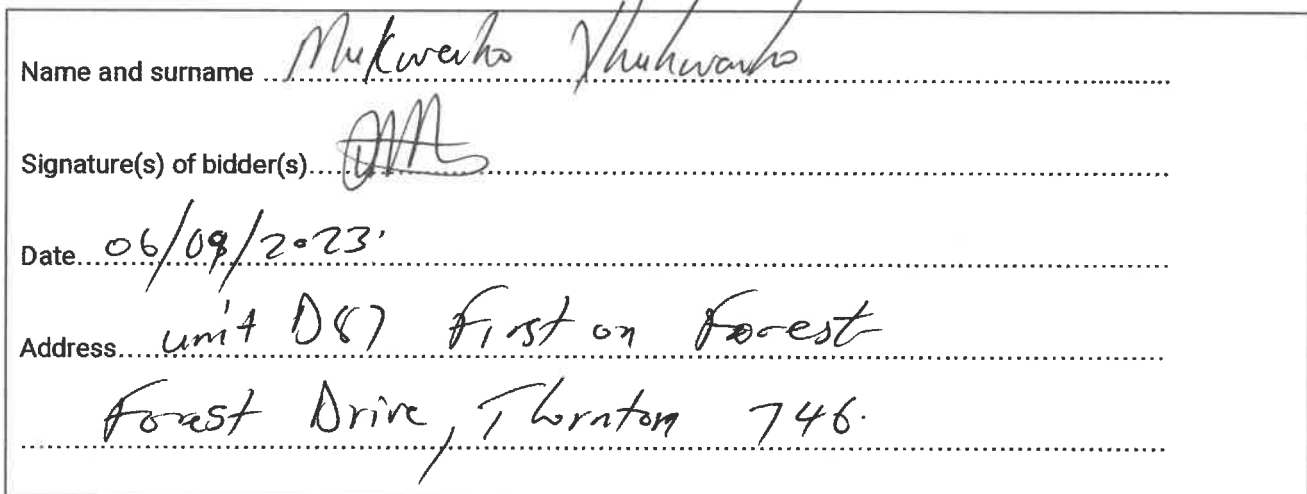 Name and surname Mukwevho
Signature(s) of bidder(s)
Date 06/09/2023
Address unit D87 First on Forest
Forest Drive, Thornton 746.